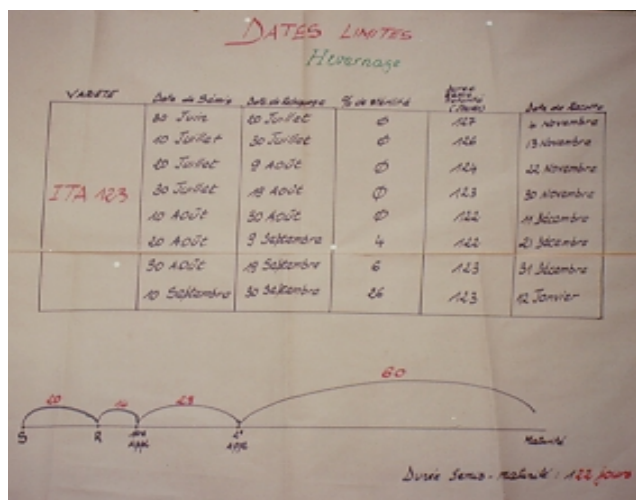 DATES LIMITES
Hivernage
VARIETE Date de Sémis Date de Repiquage % de stérilité Durée Semis Maturité (Jours) Date de Récolte
30 Juin 20 Juillet Ø 127 4 Novembre
10 Juillet 30 Juillet Ø 126 13 Novembre
20 Juillet 9 Août Ø 124 22 Novembre
ITA 123 30 Juillet 19 Août Ø 123 30 Novembre
10 Août 30 Août Ø 122 11 Décembre
20 Août 9 Septembre 4 122 21 Décembre
30 Août 19 Septembre 6 123 31 Décembre
10 Septembre 30 Septembre 26 123 12 Janvier
20 60
S R Appl 2e Appl Maturité
Durée Semis - maturité : 122 jours